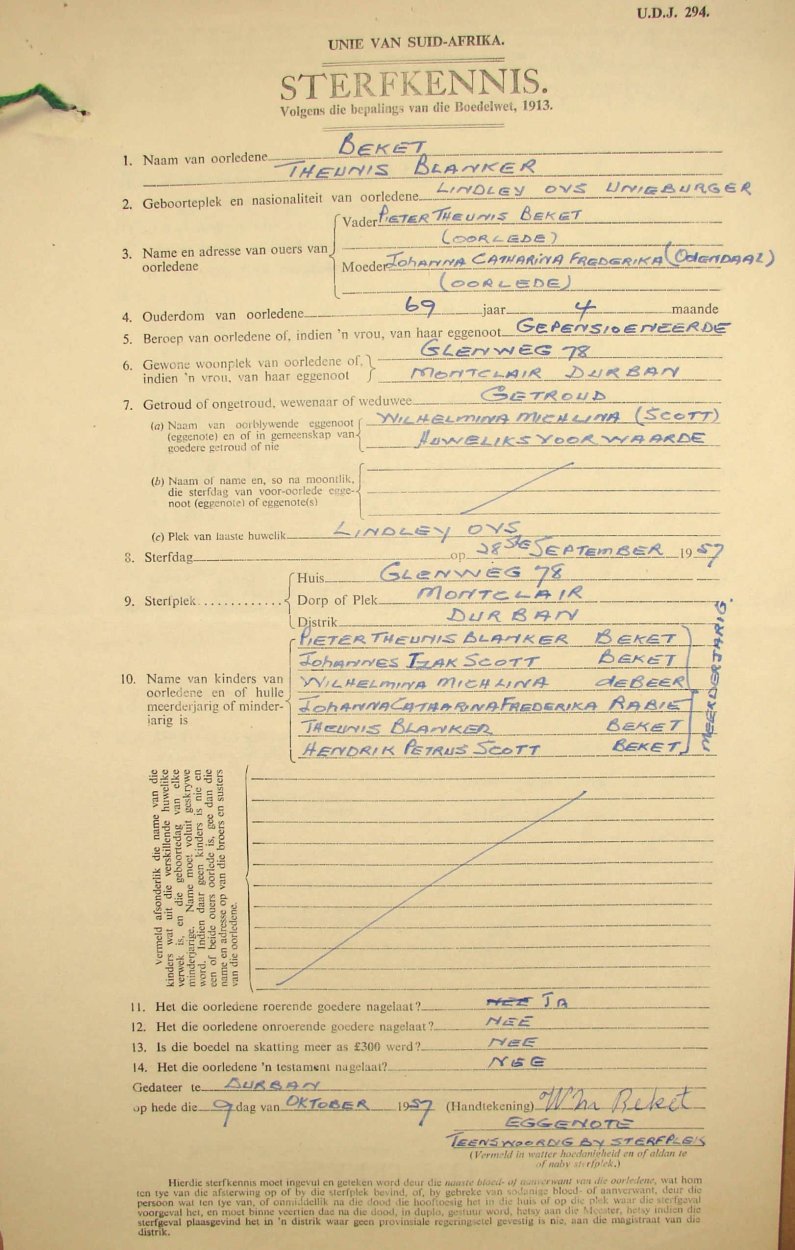 U.D.J. 294.
UNIE VAN SUID-AFRIKA.
STERFKENNIS.
Volgens die bepalings van die Boedelwet, 1913.
1. Naam van oorledene BEKET
THEUNIS BLANKER
2. Geboorteplek en nasionaliteit van oorledene LINDLEY OVS UNIEBURGER
3. Name en adresse van ouers van oorledene
Vader PIETER THEUNIS BEKET
(OORLEDE)
Moeder JOHANNA CATHARINA FREDERIKA (ODENDAAL)
(OORLEDE)
4. Ouderdom van oorledene 69 jaar 4 maande
5. Beroep van oorledene of, indien 'n vrou, van haar eggenoot GEPENSIOENEERDE
6. Gewone woonplek van oorledene of, indien 'n vrou, van haar eggenoot
GLENWEG 78
MONTCLAIR DURBAN
7. Getroud of ongetroud, wewenaar of weduwee GETROUD
(a) Naam van oorblywende eggenoot (eggenote) en of in gemeenskap van goedere getroud of nie
WILHELMINA MICHLINA (SCOTT)
HUWELIKSVOORWAARDE
(b) Naam of name en, so na moontlik, die sterfdag van voor-oorlede eggenoot (eggenote) of eggenote(s)
(c) Plek van laaste huwelik LINDLEY OVS
8. Sterfdag op 28STE SEPTEMBER 1957
9. Sterfplek
Huis GLENWEG 78
Dorp of Plek MONTCLAIR
Distrik DURBAN
10. Name van kinders van oorledene en of hulle meerderjarig of minderjarig is
PIETER THEUNIS BLANKER BEKET
JOHANNES IZAK SCOTT BEKET
WILHELMINA MICHLINA deBEER
JOHANNA CATHARINA FREDERIKA RABIE
THEUNIS BLANKER BEKET
HENDRIK PETRUS SCOTT BEKET
MEERDERJARIG.
Vermeld afsonderlik die name van die
kinders wat uit die verskillende huwelike
verwek is, en die geboortedag van elke
minderjarige. Name moet voluit geskrywe
word. Indien daar geen kinders is nie en
een of beide ouers oorlede is, gee dan die
name en adresse op van die broers en susters
van die oorledene.
11. Het die oorledene roerende goedere nagelaat? NEE JA
12. Het die oorledene onroerende goedere nagelaat? NEE
13. Is die boedel na skatting meer as £300 werd? NEE
14. Het die oorledene 'n testament nagelaat? NEE
Gedateer te DURBAN
op hede die 9 dag van OKTOBER 1957 (Handtekening) W M Beket
EGGENOTE
TEENSWOORDIG BY STERFPLEK
(Vermeld in watter hoedanigheid en of aldan te
of naby sterfplek.)
Hierdie sterfkennis moet ingevul en geteken word deur die naaste bloed- of aanverwant van die oorledene, wat hom
ten tye van die afsterwing op of by die sterfplek bevind, of, by gebreke van sodanige bloed- of aanverwant, deur die
persoon wat ten tye van, of onmiddellik na die dood die hooftoesig het in die huis of op die plek waar die sterfgeval
voorgeval het, en moet binne veertien dae na die dood, in duplo, gestuur word, hetsy aan die Meester, hetsy indien die
sterfgeval plaasgevind het in 'n distrik waar geen provinsiale regeringsetel gevestig is nie, aan die magistraat van die
distrik.